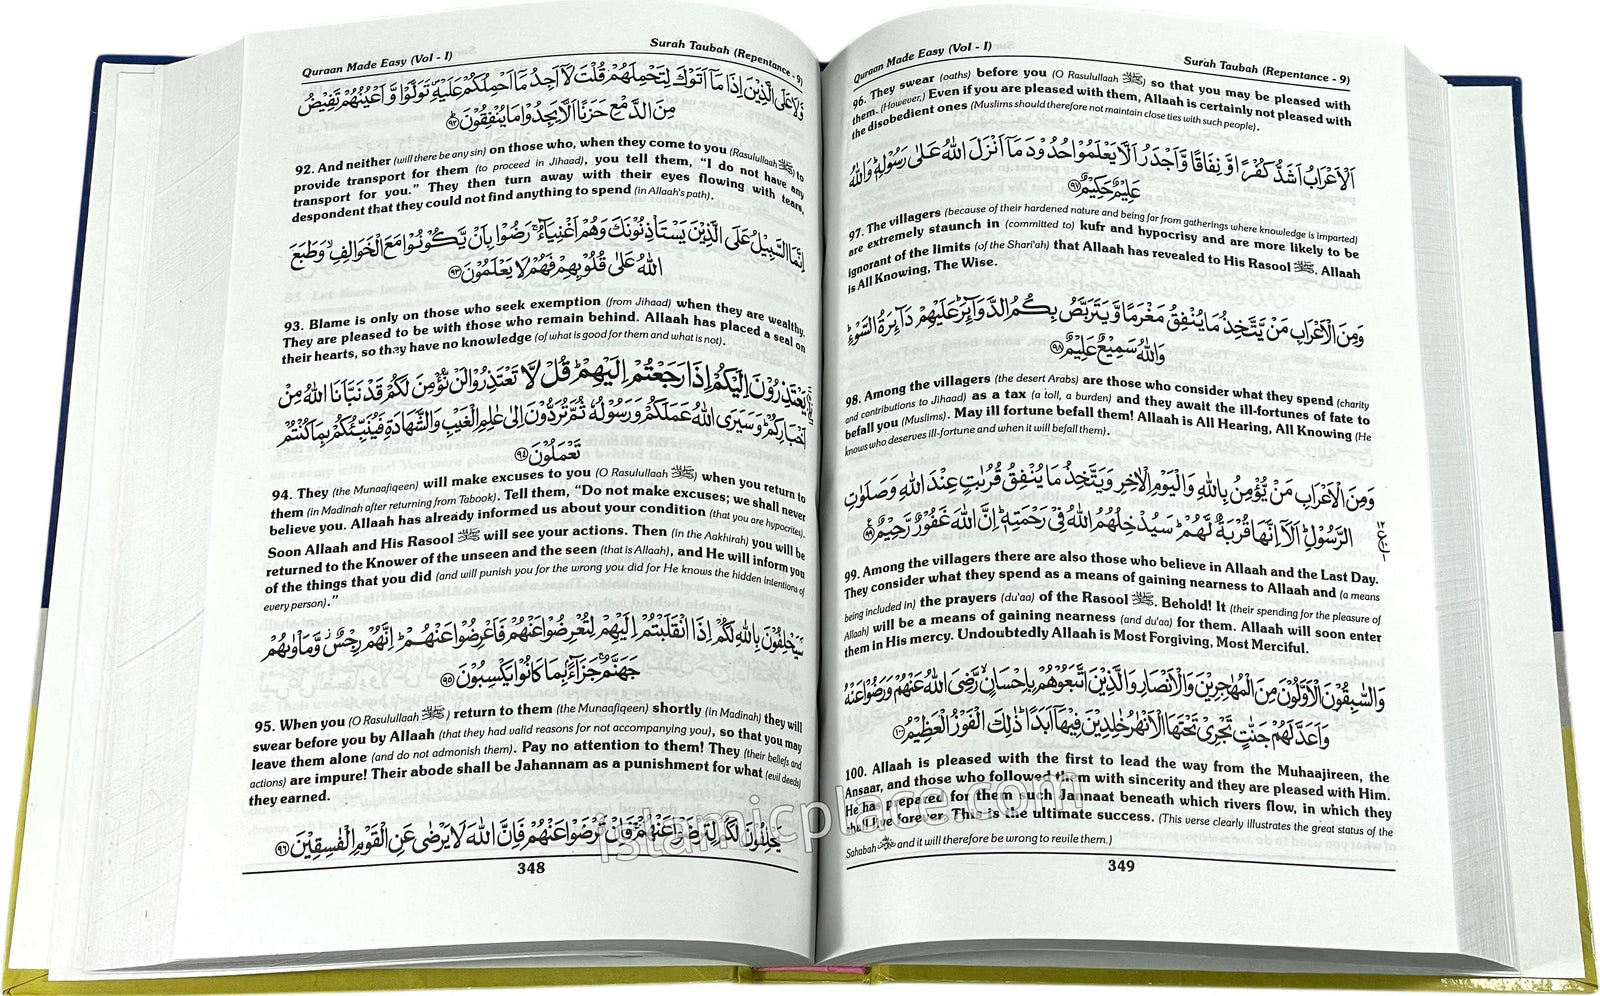 Quraan Made Easy (Vol - I) Surah Taubah (Repentance - 9)
وَّلَا عَلَى الَّذِيْنَ اِذَا مَاۤ اَتَوْكَ لِتَحْمِلَهُمْ قُلْتَ لَاۤ اَجِدُ مَاۤ اَحْمِلُكُمْ عَلَيْهِ تَوَلَّوْا وَّاَعْيُنُهُمْ تَفِيْضُ
مِنَ الدَّمْعِ حَزَنًا اَلَّا يَجِدُوْا مَا يُنْفِقُوْنَ ﴿۹۲﴾
92. And neither (will there be any sin) on those who, when they come to you (Rasulullaah ﷺ) to
provide transport for them (to proceed in Jihaad), you tell them, “I do not have any
transport for you.” They then turn away with their eyes flowing with tears,
despondent that they could not find anything to spend (in Allaah's path).
اِنَّمَا السَّبِيْلُ عَلَى الَّذِيْنَ يَسْتَاْذِنُوْنَكَ وَهُمْ اَغْنِيَآءُ ۚ رَضُوْا بِاَنْ يَّكُوْنُوْا مَعَ الْخَوَالِفِ ۙ وَطَبَعَ
اللّٰهُ عَلٰى قُلُوْبِهِمْ فَهُمْ لَا يَعْلَمُوْنَ ﴿۹۳﴾
93. Blame is only on those who seek exemption (from Jihaad) when they are wealthy.
They are pleased to be with those who remain behind. Allaah has placed a seal on
their hearts, so they have no knowledge (of what is good for them and what is not).
يَعْتَذِرُوْنَ اِلَيْكُمْ اِذَا رَجَعْتُمْ اِلَيْهِمْ ؕ قُلْ لَّا تَعْتَذِرُوْا لَنْ نُّؤْمِنَ لَكُمْ قَدْ نَبَّاَنَا اللّٰهُ مِنْ
اَخْبَارِكُمْ ؕ وَسَيَرَى اللّٰهُ عَمَلَكُمْ وَرَسُوْلُهٗ ثُمَّ تُرَدُّوْنَ اِلٰى عٰلِمِ الْغَيْبِ وَالشَّهَادَةِ فَيُنَبِّئُكُمْ بِمَا كُنْتُمْ
تَعْمَلُوْنَ ﴿۹۴﴾
94. They (the Munaafiqeen) will make excuses to you (O Rasulullaah ﷺ) when you return to
them (in Madinah after returning from Tabook). Tell them, “Do not make excuses; we shall never
believe you. Allaah has already informed us about your condition (that you are hypocrites).
Soon Allaah and His Rasool ﷺ will see your actions. Then (in the Aakhirah) you will be
returned to the Knower of the unseen and the seen (that is Allaah), and He will inform you
of the things that you did (and will punish you for the wrong you did for He knows the hidden intentions of
every person).”
سَيَحْلِفُوْنَ بِاللّٰهِ لَكُمْ اِذَا انْقَلَبْتُمْ اِلَيْهِمْ لِتُعْرِضُوْا عَنْهُمْ ؕ فَاَعْرِضُوْا عَنْهُمْ ؕ اِنَّهُمْ رِجْسٌ ۫ وَّمَاْوٰىهُمْ
جَهَنَّمُ ۚ جَزَآءًۢ بِمَا كَانُوْا يَكْسِبُوْنَ ﴿۹۵﴾
95. When you (O Rasulullaah ﷺ) return to them (the Munaafiqeen) shortly (in Madinah) they will
swear before you by Allaah (that they had valid reasons for not accompanying you), so that you may
leave them alone (and do not admonish them). Pay no attention to them! They (their beliefs and
actions) are impure! Their abode shall be Jahannam as a punishment for what (evil deeds)
they earned.
يَحْلِفُوْنَ لَكُمْ لِتَرْضَوْا عَنْهُمْ ۚ فَاِنْ تَرْضَوْا عَنْهُمْ فَاِنَّ اللّٰهَ لَا يَرْضٰى عَنِ الْقَوْمِ الْفٰسِقِيْنَ ﴿۹۶﴾
348
Quraan Made Easy (Vol - I) Surah Taubah (Repentance - 9)
96. They swear (oaths) before you (O Rasulullaah ﷺ) so that you may be pleased with
them. (However,) Even if you are pleased with them, Allaah is certainly not pleased with
the disobedient ones (Muslims should therefore not maintain close ties with such people).
اَلْاَعْرَابُ اَشَدُّ كُفْرًا وَّنِفَاقًا وَّاَجْدَرُ اَلَّا يَعْلَمُوْا حُدُوْدَ مَاۤ اَنْزَلَ اللّٰهُ عَلٰى رَسُوْلِهٖ ؕ وَاللّٰهُ
عَلِيْمٌ حَكِيْمٌ ﴿۹۷﴾
97. The villagers (because of their hardened nature and being far from gatherings where knowledge is imparted)
are extremely staunch in (committed to) kufr and hypocrisy and are more likely to be
ignorant of the limits (of the Shari'ah) that Allaah has revealed to His Rasool ﷺ. Allaah
is All Knowing, The Wise.
وَمِنَ الْاَعْرَابِ مَنْ يَّتَّخِذُ مَا يُنْفِقُ مَغْرَمًا وَّيَتَرَبَّصُ بِكُمُ الدَّوَآئِرَ ؕ عَلَيْهِمْ دَآئِرَةُ السَّوْءِ ؕ
وَاللّٰهُ سَمِيْعٌ عَلِيْمٌ ﴿۹۸﴾
98. Among the villagers (the desert Arabs) are those who consider what they spend (charity
and contributions to Jihaad) as a tax (a toll, a burden) and they await the ill-fortunes of fate to
befall you (Muslims). May ill fortune befall them! Allaah is All Hearing, All Knowing (He
knows who deserves ill-fortune and when it will befall them).
وَمِنَ الْاَعْرَابِ مَنْ يُّؤْمِنُ بِاللّٰهِ وَالْيَوْمِ الْاٰخِرِ وَيَتَّخِذُ مَا يُنْفِقُ قُرُبٰتٍ عِنْدَ اللّٰهِ وَصَلَوٰتِ
الرَّسُوْلِ ؕ اَلَاۤ اِنَّهَا قُرْبَةٌ لَّهُمْ ؕ سَيُدْخِلُهُمُ اللّٰهُ فِيْ رَحْمَتِهٖ ؕ اِنَّ اللّٰهَ غَفُوْرٌ رَّحِيْمٌ ﴿۹۹﴾
99. Among the villagers there are also those who believe in Allaah and the Last Day.
They consider what they spend as a means of gaining nearness to Allaah and (a means
being included in) the prayers (du'aa) of the Rasool ﷺ. Behold! It (their spending for the pleasure of
Allaah) will be a means of gaining nearness (and du'aa) for them. Allaah will soon enter
them in His mercy. Undoubtedly Allaah is Most Forgiving, Most Merciful.
وَالسّٰبِقُوْنَ الْاَوَّلُوْنَ مِنَ الْمُهٰجِرِيْنَ وَالْاَنْصَارِ وَالَّذِيْنَ اتَّبَعُوْهُمْ بِاِحْسَانٍ ۙ رَّضِيَ اللّٰهُ عَنْهُمْ وَرَضُوْا عَنْهُ
وَاَعَدَّ لَهُمْ جَنّٰتٍ تَجْرِيْ تَحْتَهَا الْاَنْهٰرُ خٰلِدِيْنَ فِيْهَاۤ اَبَدًا ؕ ذٰلِكَ الْفَوْزُ الْعَظِيْمُ ﴿۱۰۰﴾
100. Allaah is pleased with the first to lead the way from the Muhaajireen, the
Ansaar, and those who followed them with sincerity and they are pleased with Him.
He has prepared for them such Jannaat beneath which rivers flow, in which they
shall live forever. This is the ultimate success. (This verse clearly illustrates the great status of the
Sahabah and it will therefore be wrong to revile them.)
349
islamicplace.com